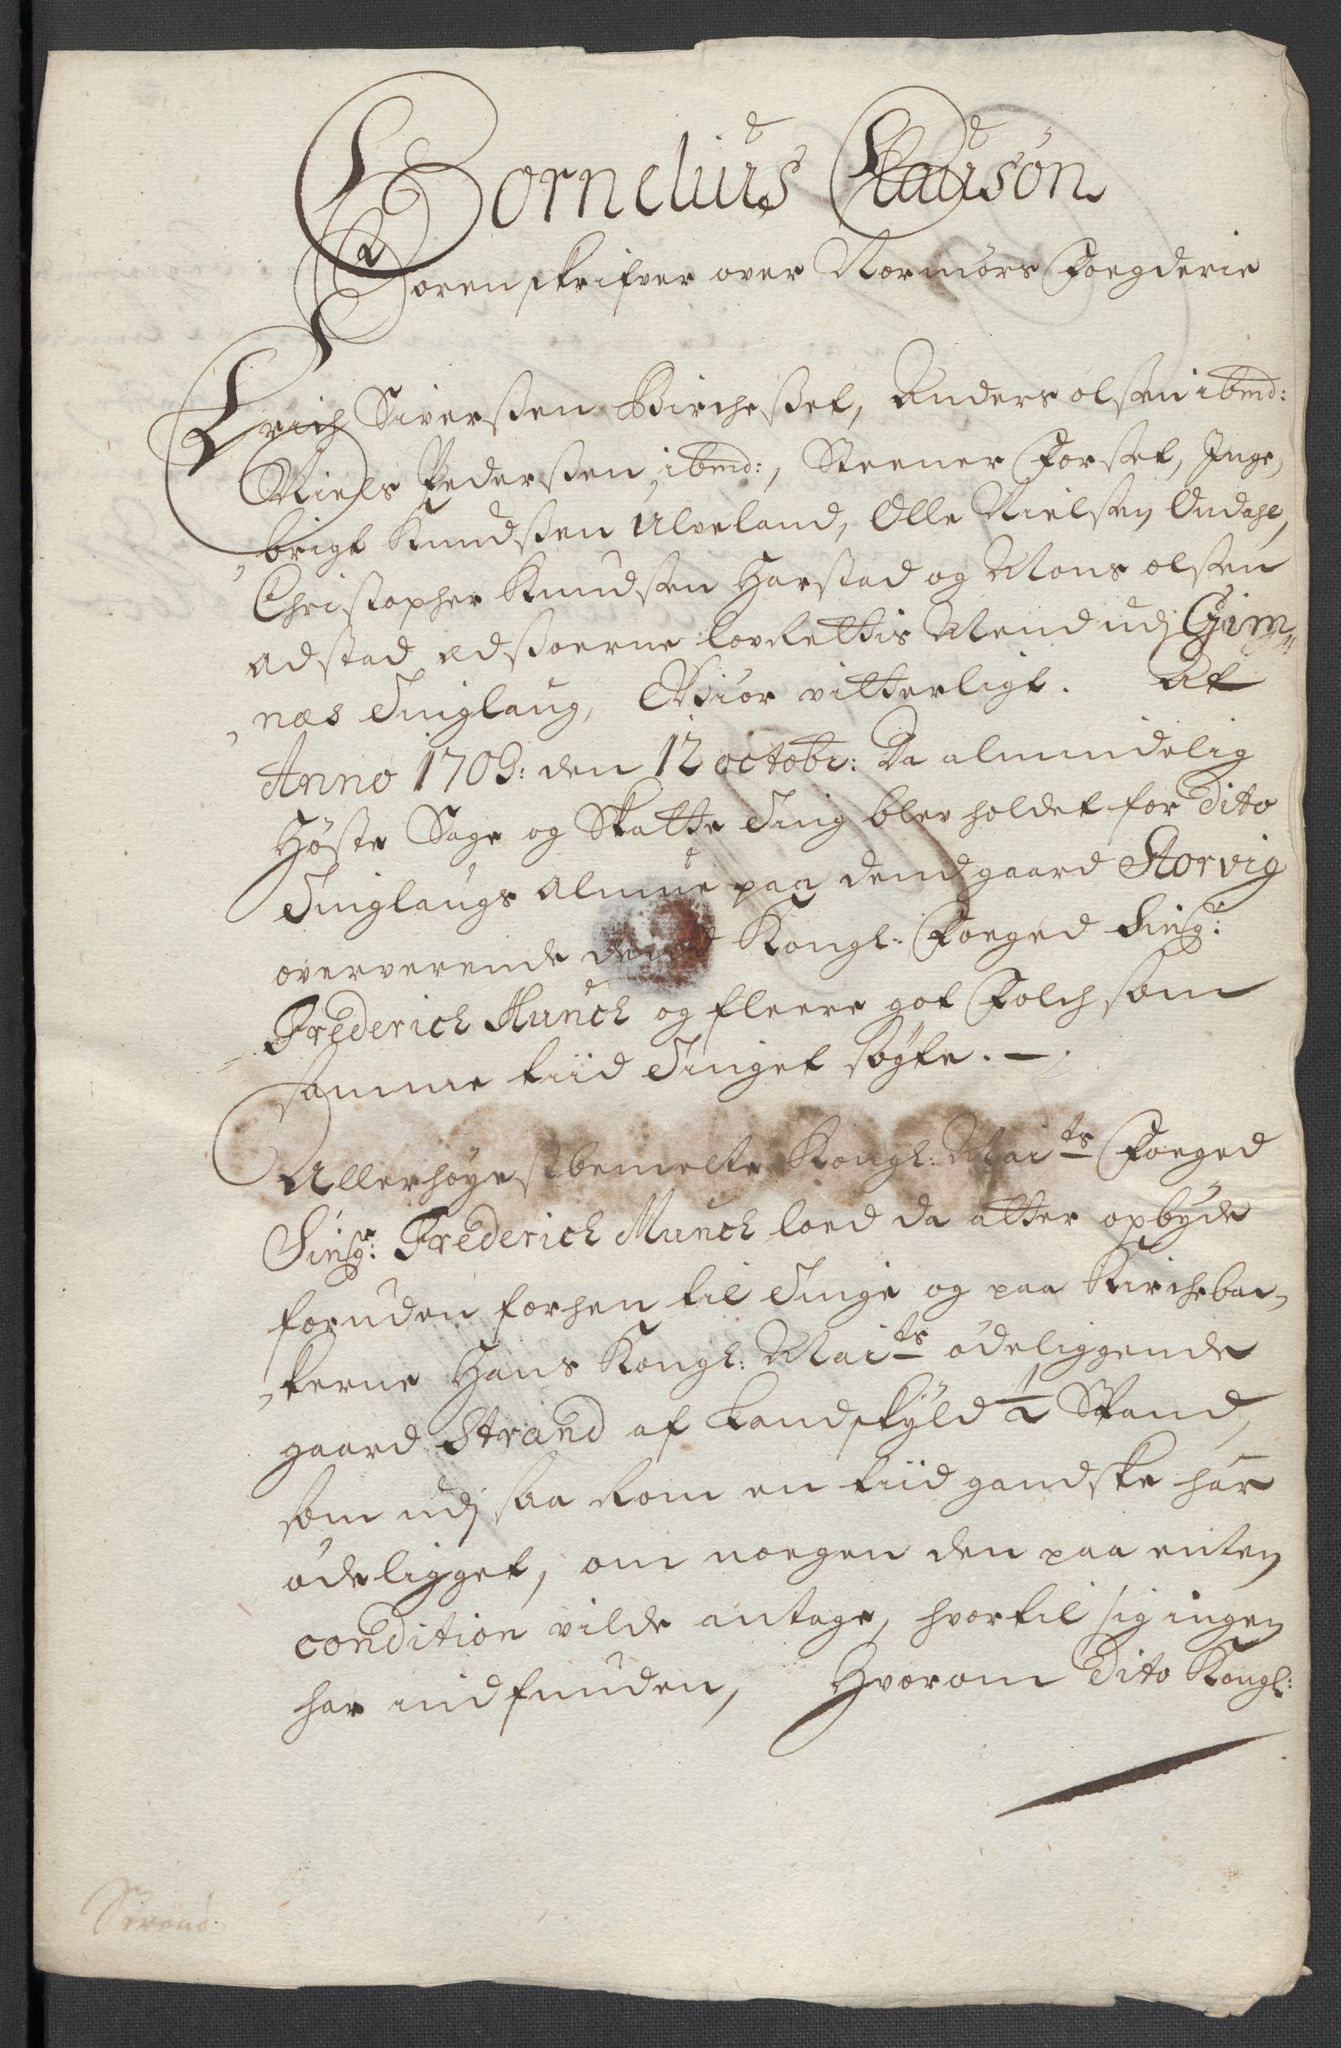 Cornelius Clausøn
Sorenskrifver over Normørs Foegderie
Erich Siverssen Birchesset, Anders olssen ibmd:
Niels Pederssen ibmd:, Steener Forset, Inge,
brigt Knudssen Ulveland, Olle Nielssen Ondahl,
Christopher Knudssen Harstad og Mons olssen
adstad, edssoerne lovRettis Mend udj Gim,
næs Tinglaug, Giør vitterligt. At
Anno 1709: den 12 octobr: Da almindelig
Høste Sage og Skatte Ting blev holdet for dito
Tinglaugs Almue paa dend gaard Storvig
oververende Kongl: Foeged Singr:
Frederich Munch og fleere got Folch som
samme tiid Tinget søgte. —
Allerhøyestbemelte Kongl: Maits Foeged
Singr: Frederich Munch loed da atter opbyde
foruden forhen til Tinge og paa Kircheba
kerne Hans Kongl: Maits ødeliggende
gaard Strand af Landskyld 1/2 Spand,
som udj saa Rom en tiid gandske har
ødeligget, om noegen den paa enten
condition vilde antage, hvortil sig ingen
har indfunden, Hvorom dito Kongl:
Strand